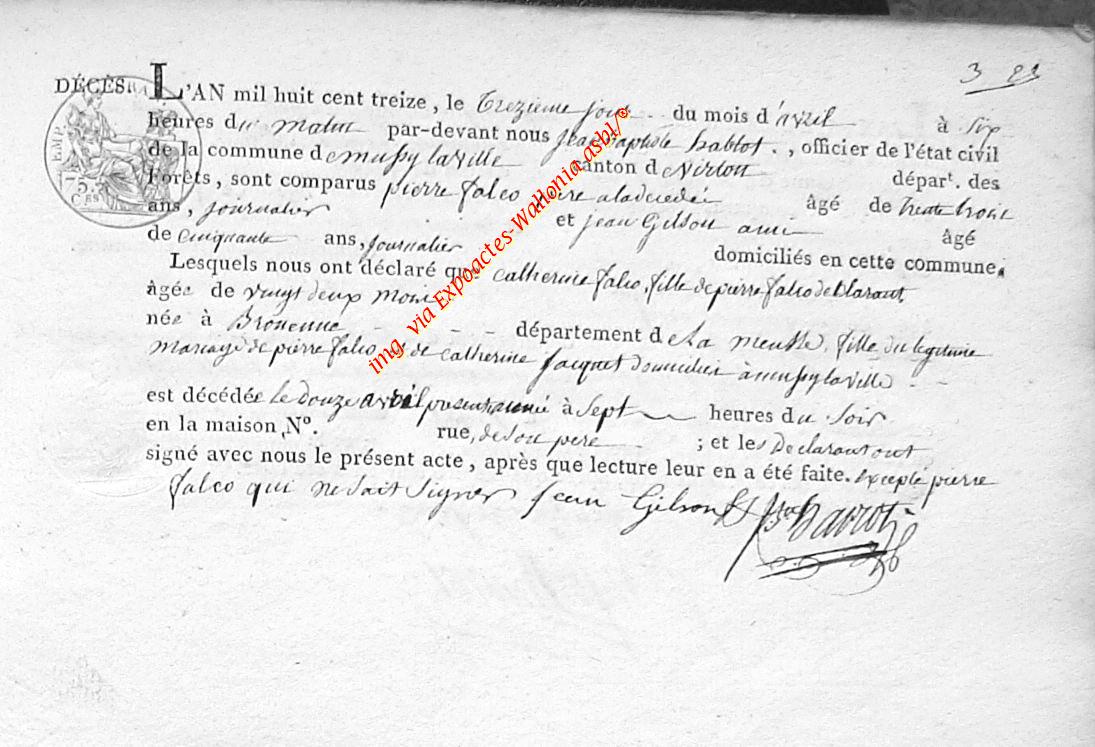 3 23
DÉCÈS. L'AN mil huit cent treize, le trezieme jour du mois d'avril à six
heures du matin par-devant nous jean baptiste hablot, officier de l'état civil
de la commune de mussy laville canton de virton départ. des
Forêts, sont comparus pierre falco pere aladecedée âgé de trente trois
ans, journalier et jean Gilson ami âgé
de cinquante ans, journalier domiciliés en cette commune.
Lesquels nous ont déclaré que catherine falco, fille de pierre falco declarant
âgée de vingt deux mois
née à Brouenne - - - département de la meuse, fille du legitime
mariage de pierre falco et de catherine jacquet domicilier à mussy laville - -
est décédée le douze avril presente année à sept heures du soir
en la maison, N°. rue, de son pere ; et les declarant ont
signé avec nous le présent acte, après que lecture leur en a été faite. excepté pierre
falco qui ne sait signer jean Gilson
EMP.
75.
CES
img. via Expoactes-Wallonia.asbl/©